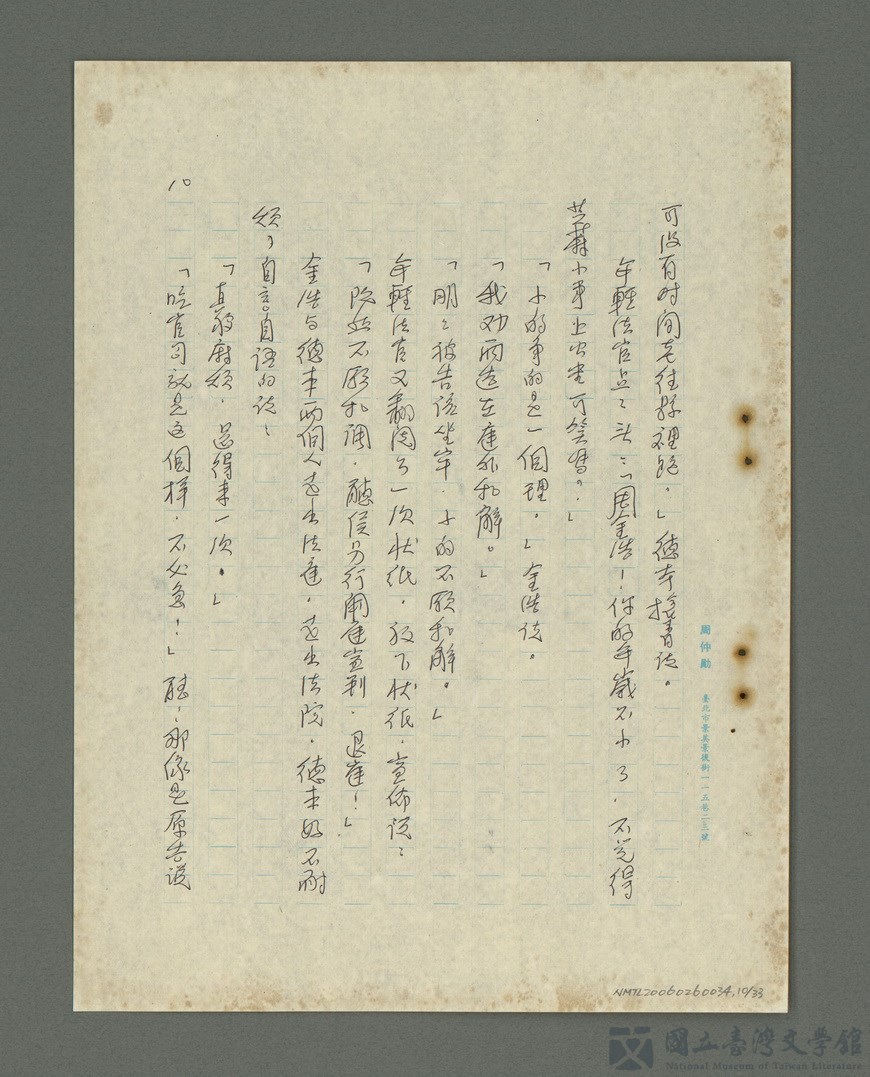 可沒有时间老往县裡跑。」德本接着说。
年輕法官点点头：「周金浩！你的年歲不小了，不覺得
芝蔴小事上公堂可笑嗎？」
「小的争的是一個理。」金浩说。
「我劝兩造在庭外和解。」
「明明被告该坐牢，小的不願和解。」
年輕法官又翻阅了一次状纸，放下状纸，宣佈说：
「既然不願和调，聽候另行開庭宣判，退庭！」
金浩与德本兩個人走出法庭，走出法院，德本好不耐
煩，自言自語的说：
「真夠麻煩，還得来一次。」
「吃官司就是这個样，不必急！」聽！那像是原告说
10
周仲勳 臺北市景美景後街一一五巷二三號
NMTL20060260034,10/33
國立臺灣文學館
National Museum of Taiwan Literature